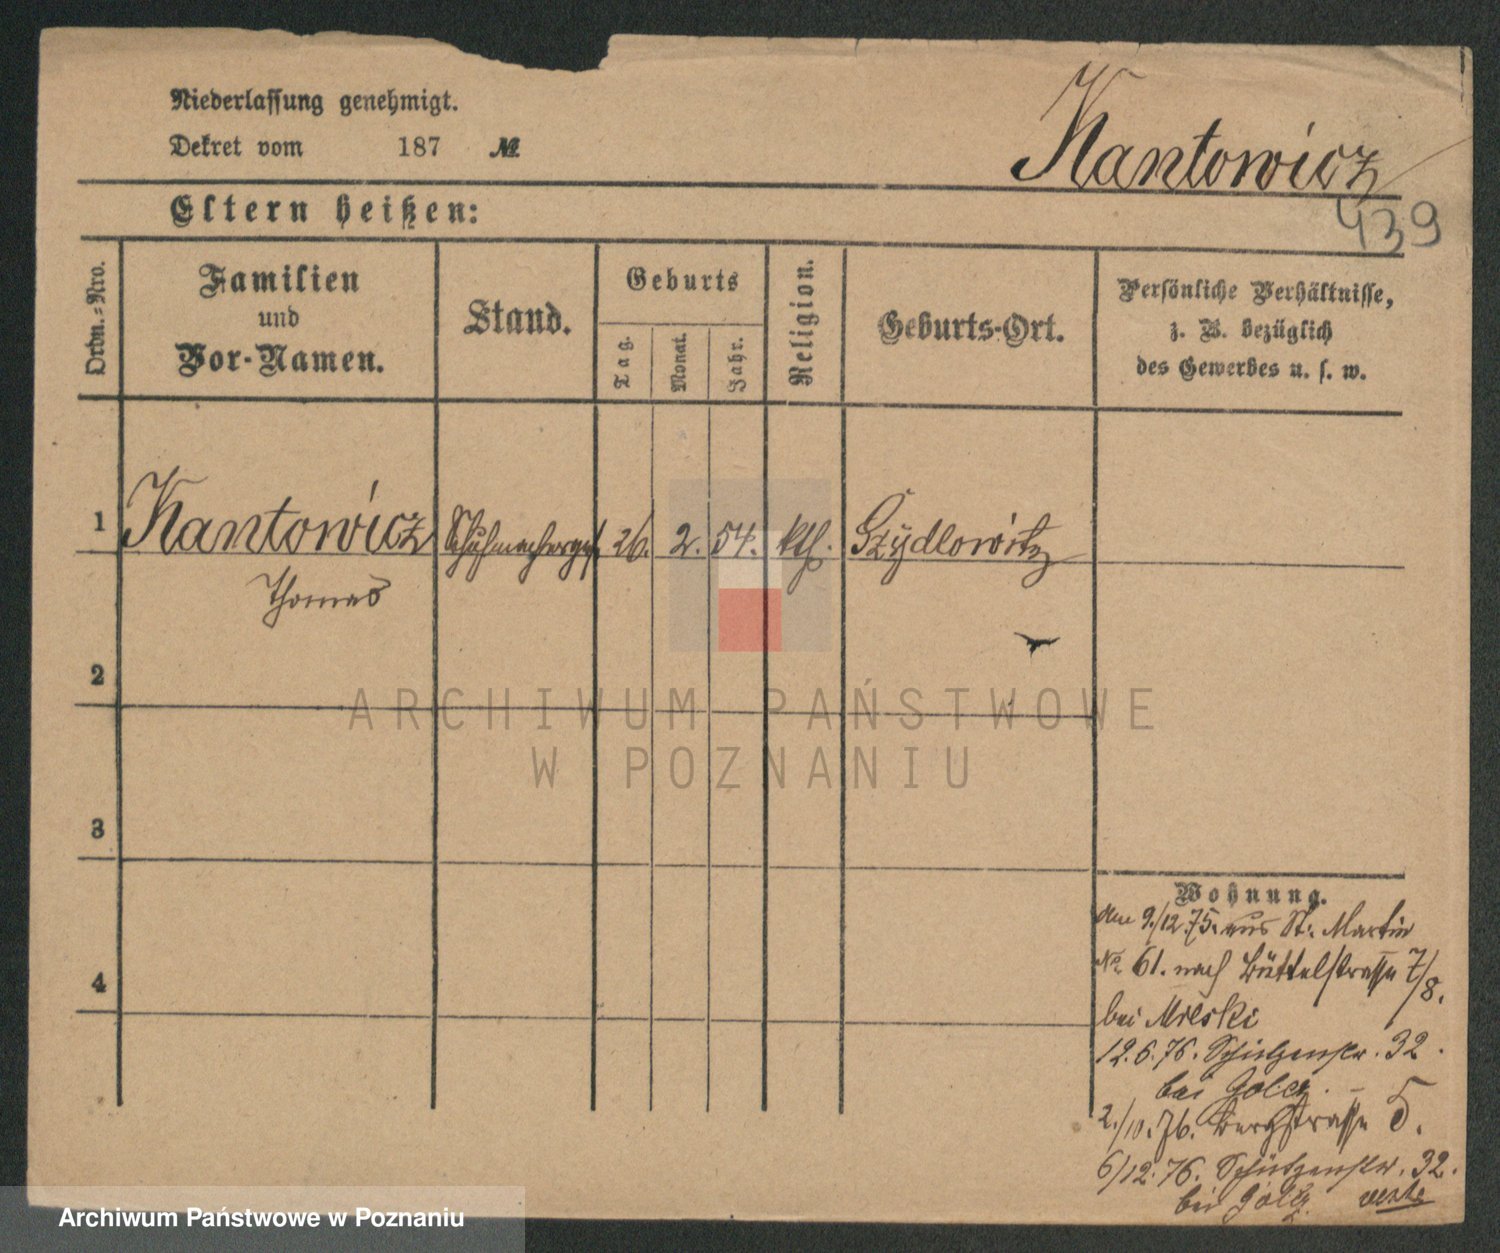 Niederlassung genehmigt.
Dekret vom 187 №
Kantowicz
439
Eltern heißen:
Ordn.-Nro.
Familien und Vor-Namen.
Stand.
Geburts
Tag.
Monat.
Jahr.
Religion.
Geburts-Ort.
Persönliche Verhältnisse,
z. B. bezüglich
des Gewerbes u. s. w.
1 Kantowicz Schuhmacherges. 26. 2. 54. kth. Szydlowitz
Thomas
2
ARCHIWUM PAŃSTWOWE
W POZNANIU
3
Wohnung.
den 9./12 75. aus St. Martin
No 61. nach Büttelstrasse 7/8.
4
bei Milski
12.6.76. Schützenstr. 32.
bei
2./10.76. Bergstrasse 5.
6/12.76. Schützenstr. 32.
bei
Archiwum Państwowe w Poznaniu